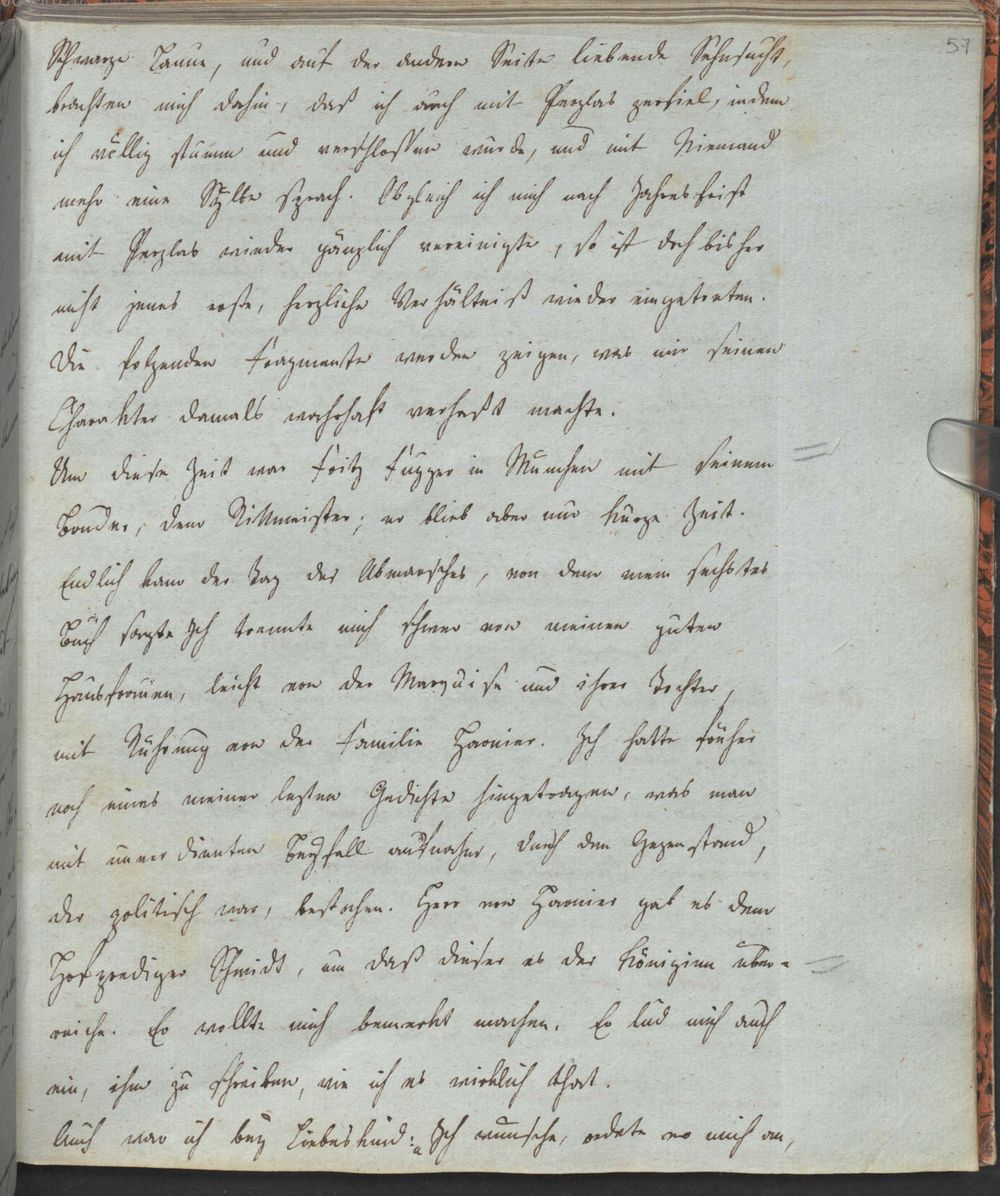 57
Schwarze Laune, und auf der andern Seite liebende Sehnsucht,
brachten mich dahin, daß ich auch mit Perglas zerfiel, indem
ich völlig stumm und verschlossen wurde, und mit Niemand
mehr eine Sylbe sprach. Obgleich ich mich nach Jahresfrist
mit Perglas wieder gänzlich vereinigte, so ist doch bisher
nicht jenes erste, herzliche Verhältniß wieder eingetreten.
Die folgenden Fragmente werden zeigen, was mir seinen
Charakter damals wahrhaft verhaßt machte.
Um diese Zeit war Fritz Fugger in München mit seinem
Bruder, dem Rittmeister; er blieb aber nur kurze Zeit.
Endlich kam der Tag des Abmarsches, von dem mein sechstes
Buch sagte. Ich trennte mich schwer von meinen guten
Hausfrauen, leicht von der Marquise und ihrer Tochter,
mit Rührung von der Familie Harnier. Ich hatte früher
noch eines meiner letzten Gedichte hingetragen, was man
mit unverdienten Beyfall aufnahm, durch den Gegenstand,
der politisch war, bestochen. Herr von Harnier gab es dem
Hofprediger Schmidt, um daß dieser es der Königinn über=
reiche. Er wollte mich bemerkt machen. Er lud mich auch
ein, ihm zu schreiben, wie ich es wirklich that.
Auch war ich bey Liebeskind: „Ich wünsche, redete er mich an,